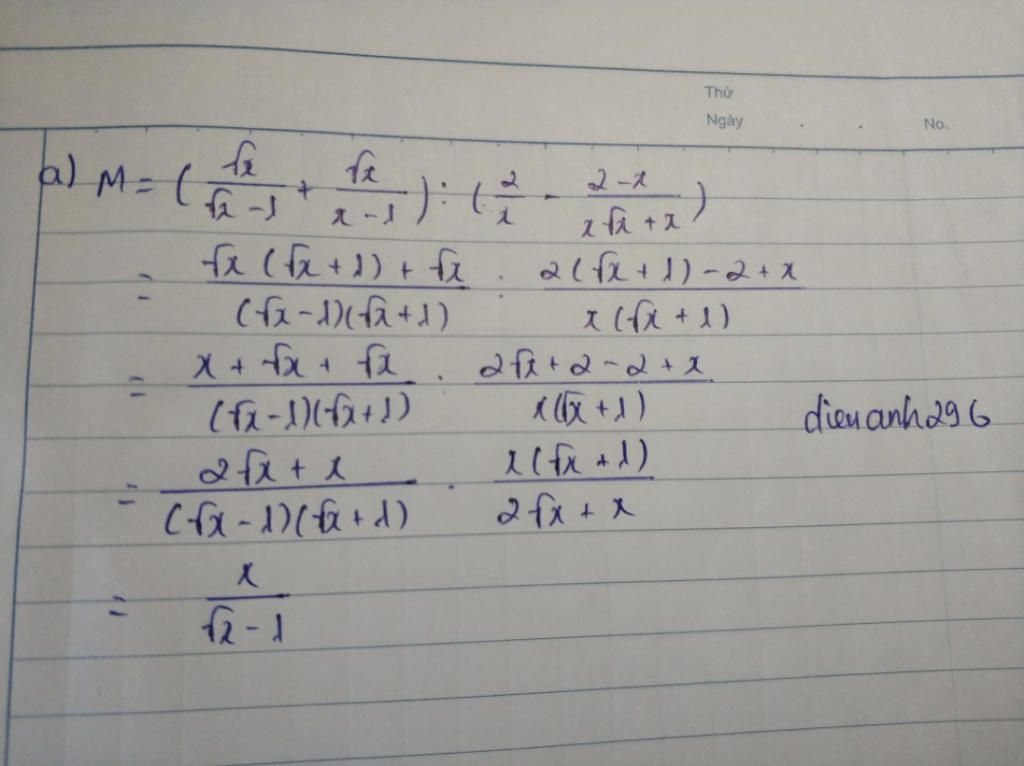 Thứ
Ngày . . No.
a) M = (√x/(√x - 1) + √x/(x - 1)) : (2/x - (2 - x)/(x√x + x))
= (√x(√x + 1) + √x)/((√x - 1)(√x + 1)) : (2(√x + 1) - 2 + x)/(x(√x + 1))
= (x + √x + √x)/((√x - 1)(√x + 1)) : (2√x + 2 - 2 + x)/(x(√x + 1))
dieuanh296
= (2√x + x)/((√x - 1)(√x + 1)) . (x(√x + 1))/(2√x + x)
= x/(√x - 1)